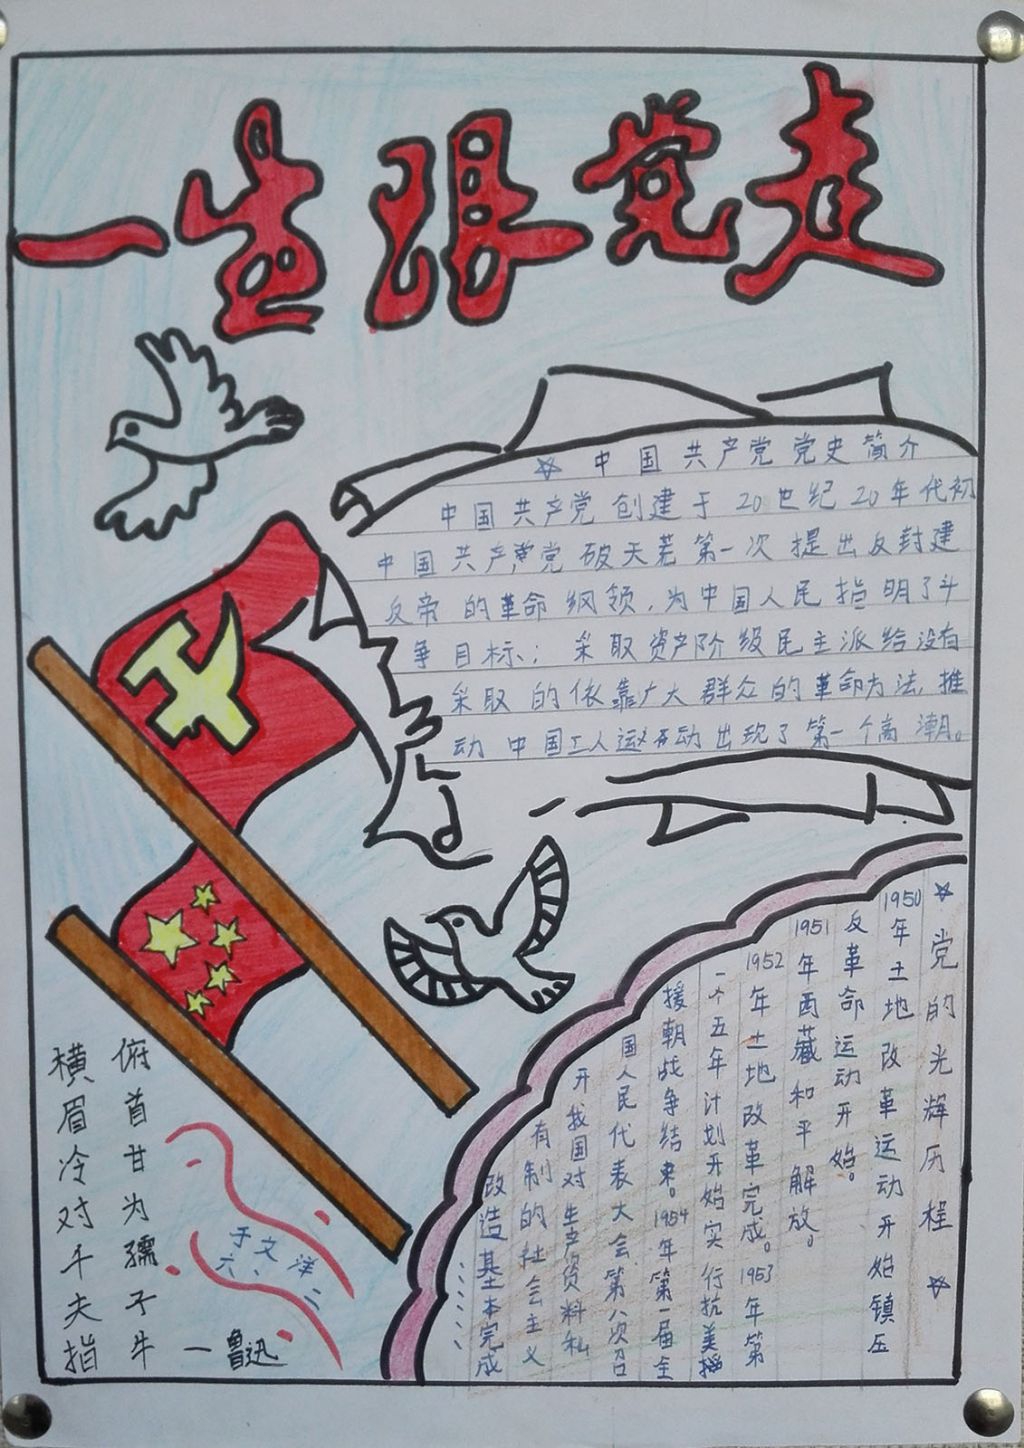 一生跟党走
☆ 中国共产党党史简介
中国共产党创建于20世纪20年代初
中国共产党破天荒第一次提出反封建
反帝的革命纲领，为中国人民指明了斗
争目标；采取资产阶级民主派给没有
采取的依靠广大群众的革命方法，推
动中国工人运动出现了第一个高潮。
☆党的光辉历程☆
1950年土地改革运动开始镇压
反革命运动开始。
1951年西藏和平解放。
1952年土地改革完成。1953年第
一个五年计划开始实行抗美
援朝战争结束。1954年第一届全
国人民代表大会第八次召
开我国对生产资料私
有制的社会主义
改造基本完成
俯首甘为孺子牛
横眉冷对千夫指
一鲁迅
于文洋
六、二